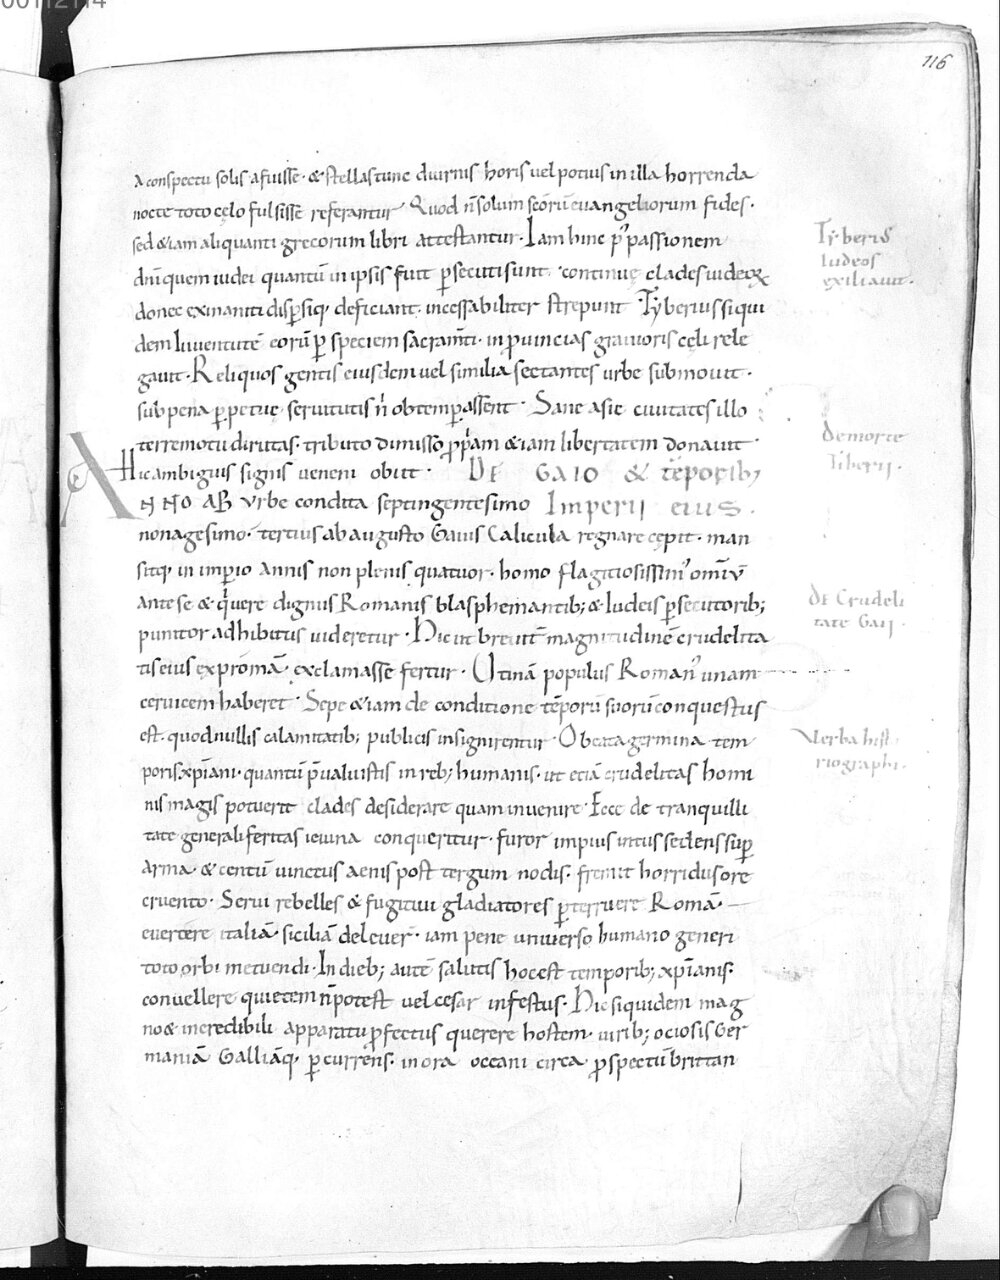 116
a conspectu solis afuisse · & stellas tunc diurnis horis vel potius in illa horrenda
nocte toto cęlo fulsisse referantur · Quod n̄ solum scōrū euangeliorum fides ·
sed & iam aliquanti grecorum libri attestantur · Iam hinc p' passionem
Tyberi'
dn̄i quem iudei quantū in ipsis fuit p̱secuti sunt · continuę clades iudeoꝝ
Iudeos
exiliauit ·
donec exinaniti disp̱siq; deficiant · incessabiliter strepunt · Tyberius siqui
dem Iuuentutē eorū p̱ speciem sacram̄ti · in ꝓuincias grauioris cęli rele
gauit · Reliquos gentis eiusdem vel similia sectantes urbe submouit ·
sub pena p̱petuę seruitutis n̄ obtemp̱assent · Sane asię ciuitates illo
terremotu dirutas · tributo dimisso ꝓp̱am & iam libertatem donauit ·
de morte
Tiberii ·
Hic ambiguis signis ueneni obiit · DE GAIO & tēporib;
ANNO AB vrbe condita septingentesimo Imperii eius ·
nonagesimo · tertius ab augusto Gaius Calicula regnare cępit · man
sitq; in imp̱io annis non plenis quatuor · homo flagitiosissim' omīū
ante se & q̄ uere dignus Romanis blasphemantib; & Iudeis p̱secutorib;
de Crudeli
tate Gaij ·
punitor adhibitus uideretur · Hic ut breuit̄ magnitudinē crudelita
tis eius expromā · exclamasse fertur · Utinā populus Roman' unam
ceruicem haberet · Sepe & iam de conditione tēporū suorū conquestus
est · quod nullis calamitatib; publicis insignirentur · O beata germina tem
Verba hist
riographi ·
poris xp̄iani · quantū p̄ualuistis in reb; humanis · ut etiā crudelitas homi
nis magis potuerit clades desiderare quam inuenire · Ecce de tranquilli
tate generali feritas ieiuna conqueritur · furor impius intus sedens sup̱
arma · & centū uinctus aenis post tergum nodis · fremit horridus ore
cruento · Serui rebelles & fugitiui gladiatores p̱terruere Romā ·
euertere italiā · siciliā deleuer̄ · iam pene uniuerso humano generi
toto orbi metuendi · In dieb; autē salutis hoc est temporib; xp̄ianis ·
conuellere quietem n̄ potest vel cesar infestus · Hic siquidem mag
no & incredibili apparatu ꝓfectus querere hostem · uirib; ociosis Ger
maniā Galliāq; p̱currens · in ora occani circa ꝓspectū brittan